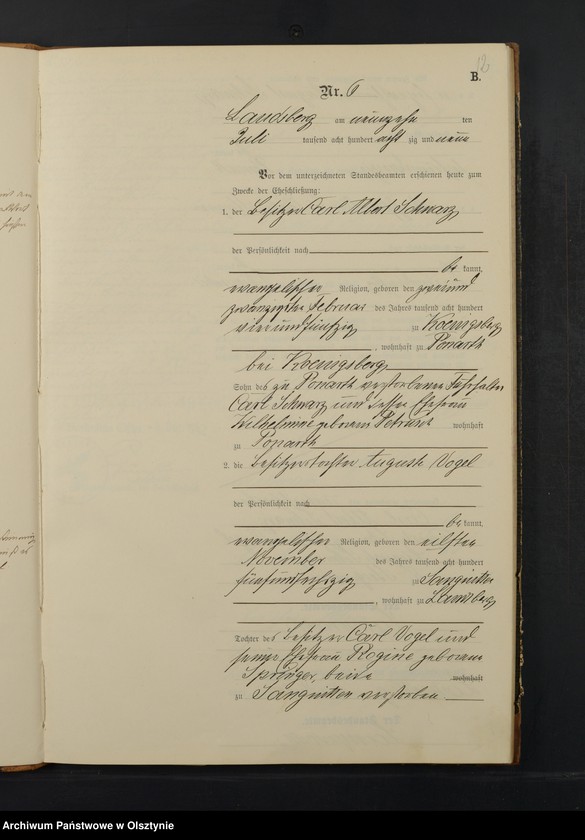 12
B.
Nr. 6
Landsberg am neunzehn ten
Juli tausend acht hundert acht zig und neun
Vor dem unterzeichneten Standesbeamten erschienen heute zum
Zwecke der Eheschließung:
1. der Besitzer Carl Albert Schwarz
der Persönlichkeit nach
be kannt,
evangelischer Religion, geboren den zweiund
zwanzigsten Februar des Jahres tausend acht hundert
vierundfünfzig zu Koenigsberg
, wohnhaft zu Ponarth
bei Koenigsberg
Sohn des zu Ponarth verstorbenen Fuhrhalter
Carl Schwarz und dessen Ehefrau
Wilhelmine geborene wohnhaft
zu Ponarth
2. die Besitzertochter Auguste Vogel
der Persönlichkeit nach
be kannt,
evangelischer Religion, geboren den eilften
November des Jahres tausend acht hundert
fünfundsechszig zu Sangnitten
, wohnhaft zu Landsberg
Tochter des Besitzer Carl Vogel und
seiner Ehefrau Regine geborene
Springer, beide wohnhaft
zu Sangnitten verstorben
Archiwum Państwowe w Olsztynie